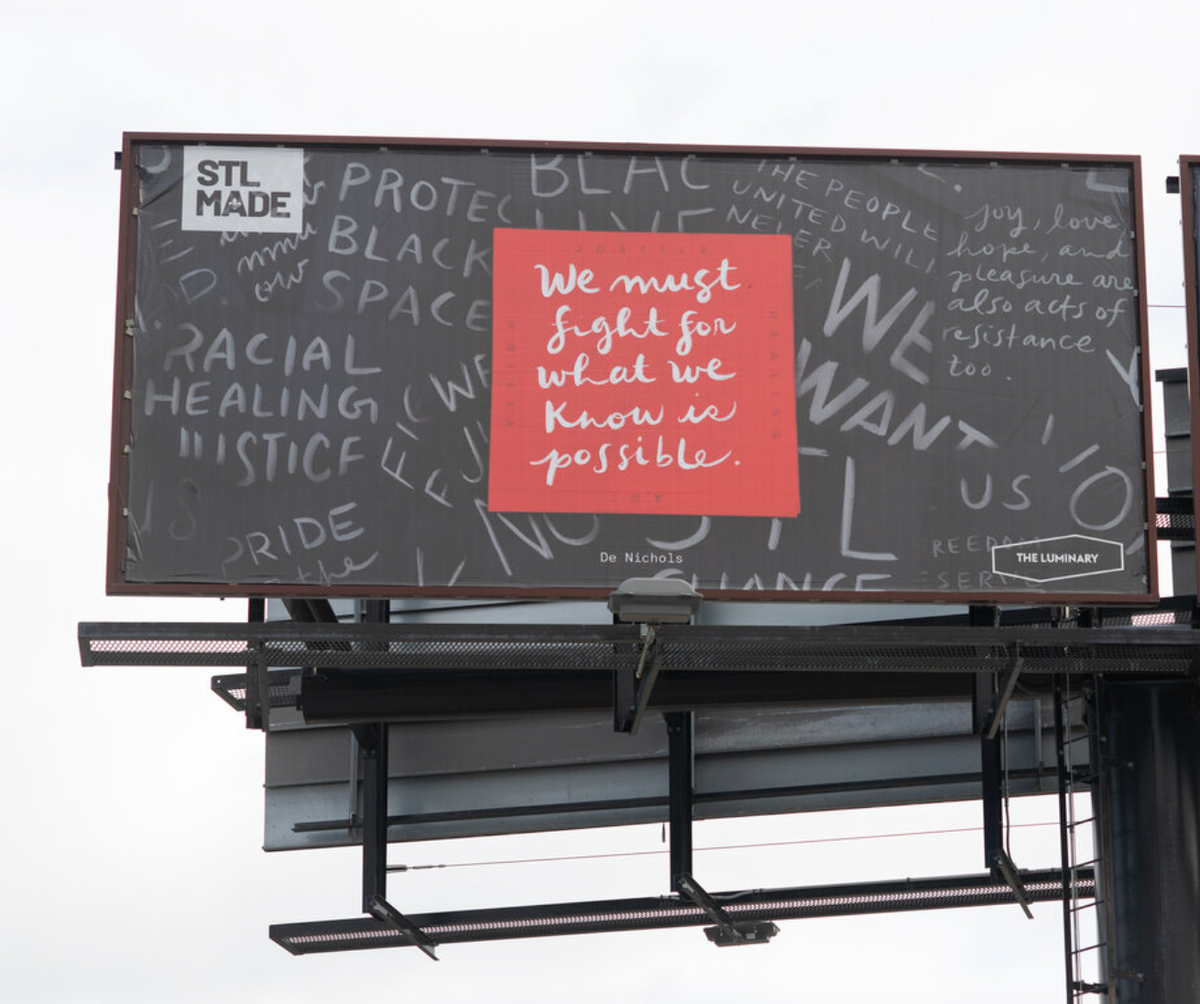 STL
MADE
PROTEC
BLACK
SPACE
RACIAL
HEALING
JUSTICE
PRIDE
the
BLAC
LIVE
THE PEOPLE
UNITED WILL
NEVER
WE
WANT
US
joy, love,
hope, and
pleasure are
also acts of
resistance
too.
JUSTICE
We must
fight for
what we
Know is
possible.
HEALING
JOY
NO
STL
De Nichols
CHANGE
REEDOM
SERV
THE LUMINARY